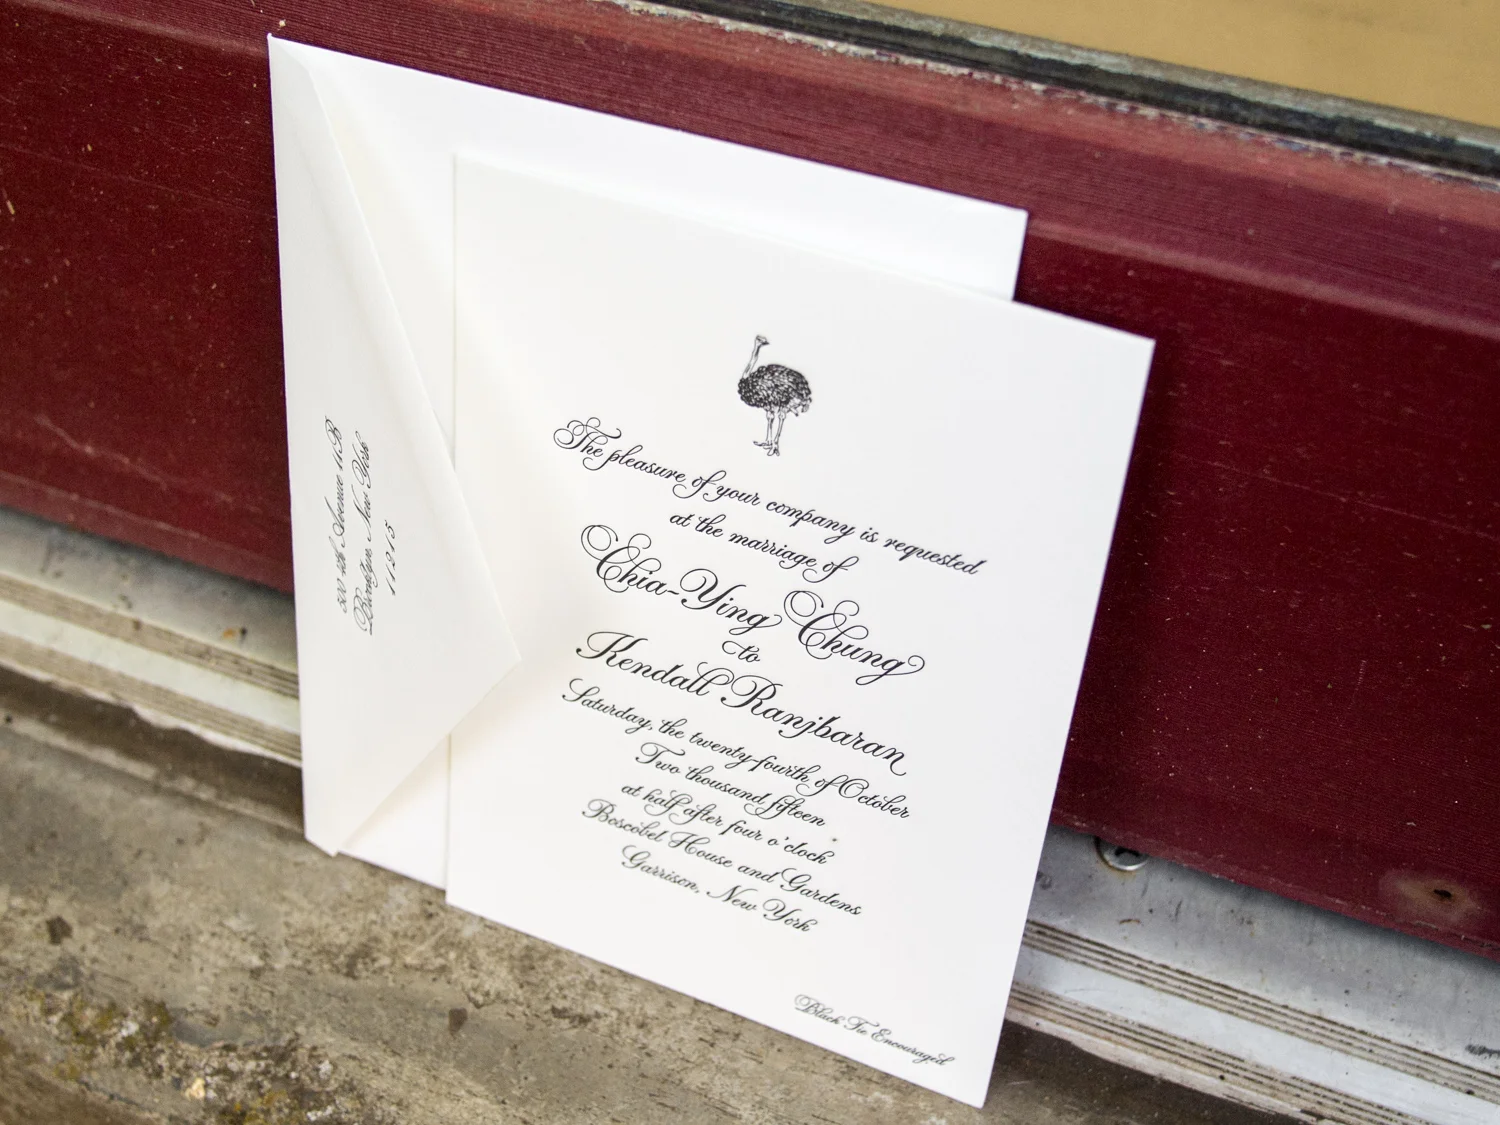 The pleasure of your company is requested
at the marriage of
Chia-Ying Chung
to
Kendall Ranjbaran
Saturday, the twenty-fourth of October
Two thousand fifteen
at half after four o'clock
Boscobel House and Gardens
Garrison, New York
Black Tie Encouraged
500 4th Avenue 11B
Brooklyn, New York
11215